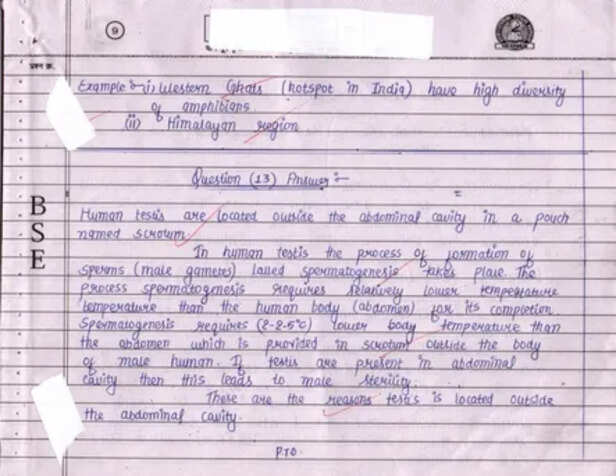 9
प्रश्न क्र.
Example :- i) Western Ghats (hotspot in India) have high diversity
of amphibians.
(ii) Himalayan region
Question (13) Answer :-
=
BSE
Human testis are located outside the abdominal cavity in a pouch
named scrotum.
In human testis the process of formation of
sperms (male gametes) called spermatogenesis takes place. The
process spermatogenesis requires relatively lower temperature
temperature than the human body (abdomen) for its completion
Spermatogenesis requires (2-2.5°C) lower body temperature than
the abdomen which is provided in scrotum outside the body
of male human. If testis are present in abdominal
cavity then this leads to male sterility.
These are the reasons testis is located outside
the abdominal cavity.
P.T.O.